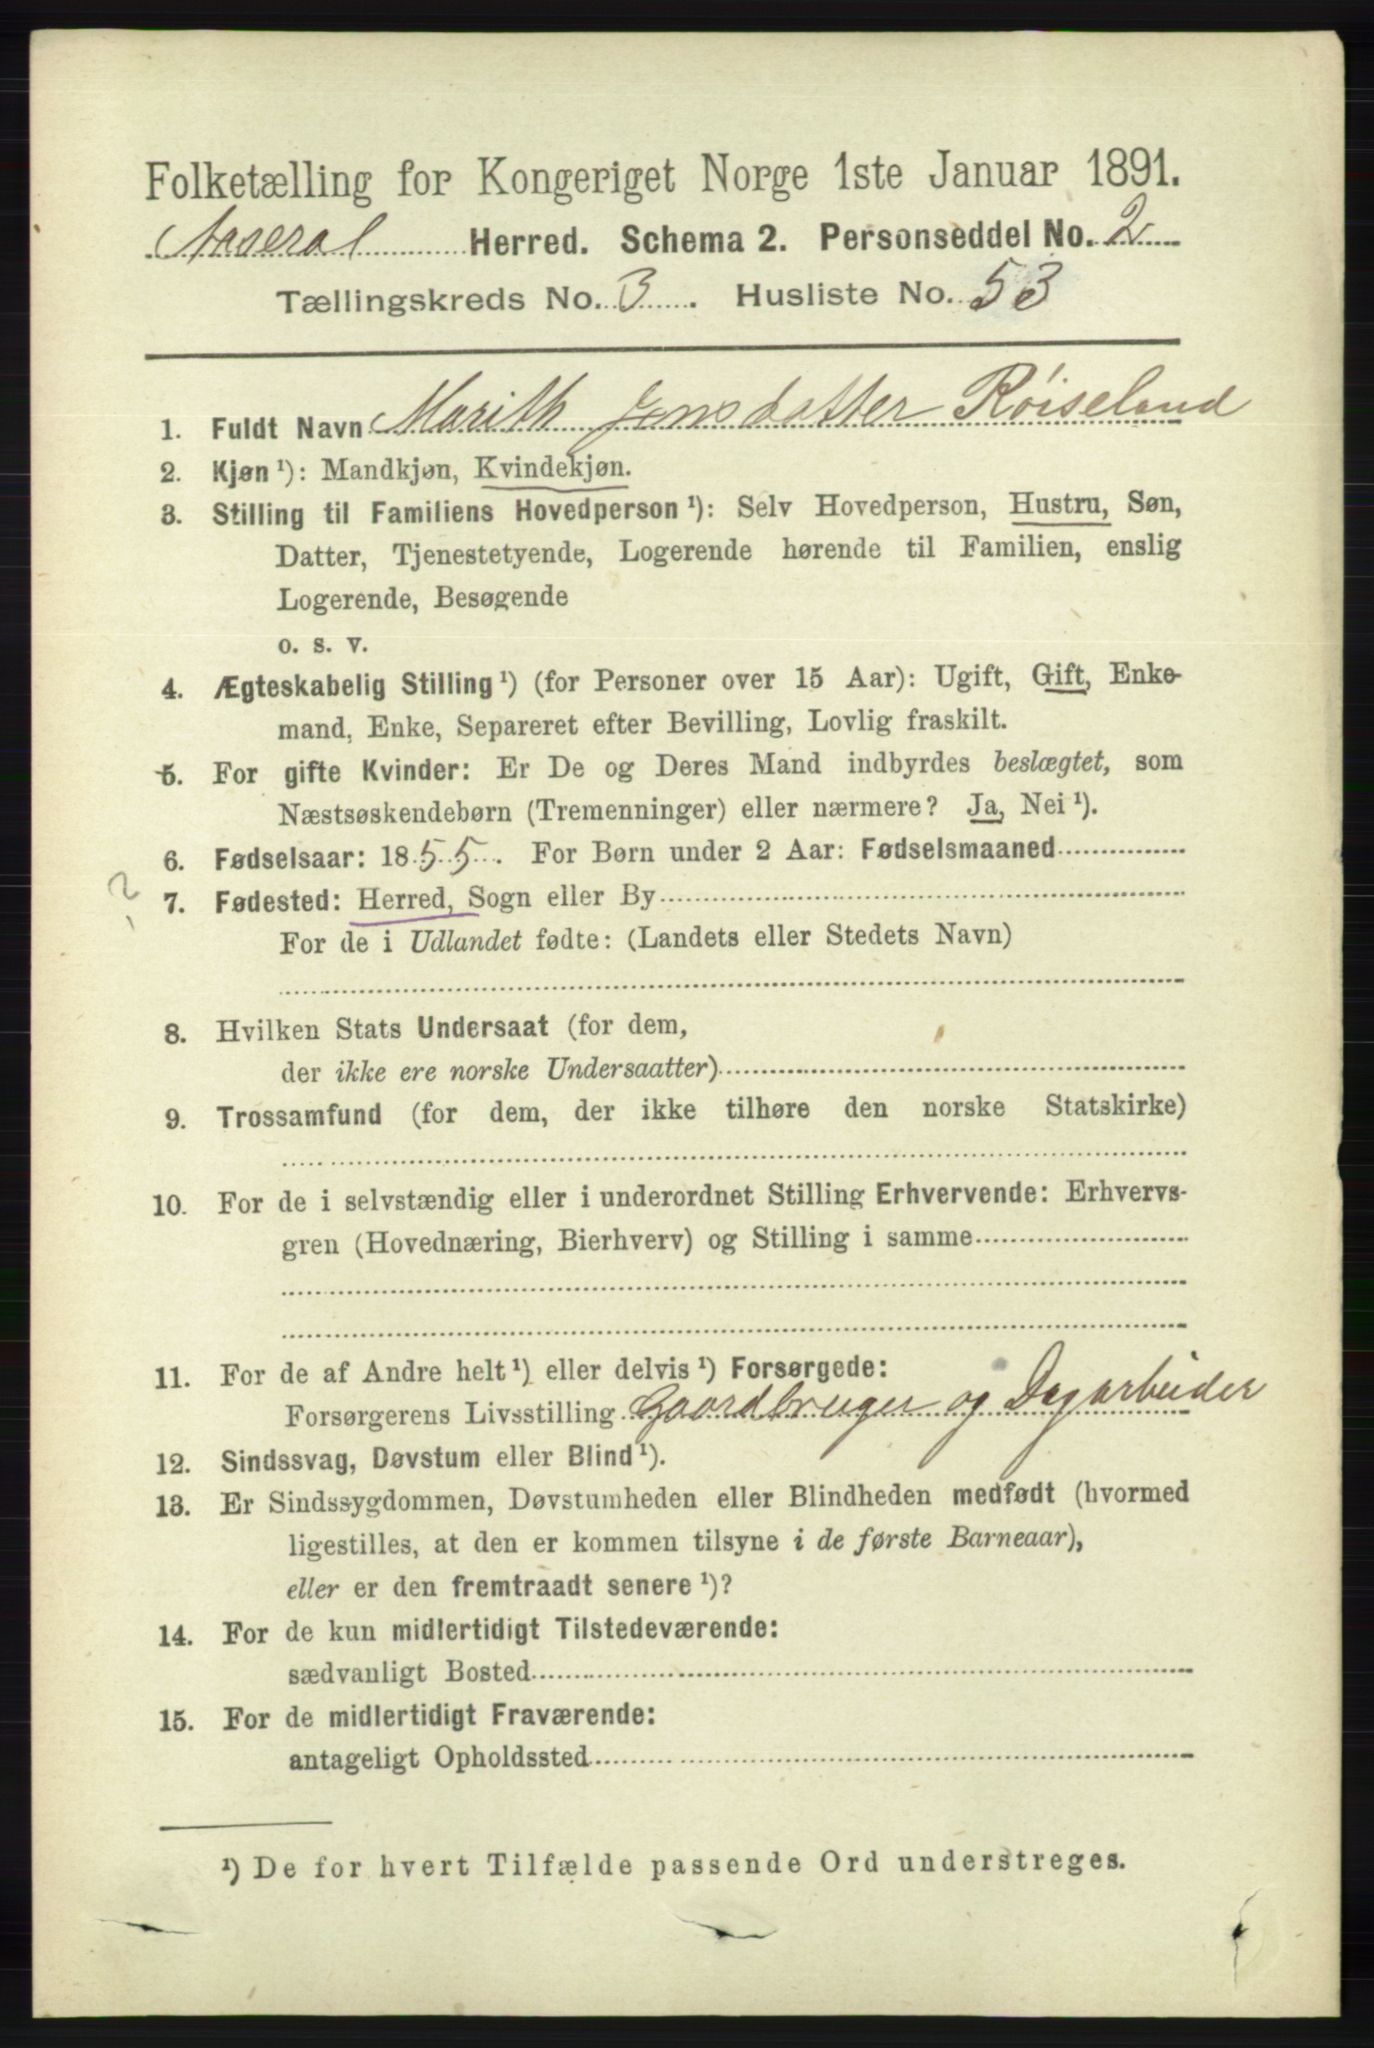 Folketælling for Kongeriget Norge 1ste Januar 1891.
Aaseral Herred. Schema 2. Personseddel No. 2
Tællingskreds No. 3. Husliste No. 53
1. Fuldt Navn Marith Jensdatter Røiseland
2. Kjøn ¹): Mandkjøn, Kvindekjøn.
3. Stilling til Familiens Hovedperson ¹): Selv Hovedperson, Hustru, Søn,
Datter, Tjenestetyende, Logerende hørende til Familien, enslig
Logerende, Besøgende
o. s. v.
4. Ægteskabelig Stilling ¹) (for Personer over 15 Aar): Ugift, Gift, Enke-
mand, Enke, Separeret efter Bevilling, Lovlig fraskilt.
5. For gifte Kvinder: Er De og Deres Mand indbyrdes beslægtet, som
Næstsøskendebørn (Tremenninger) eller nærmere? Ja, Nei ¹).
6. Fødselsaar: 1855. For Børn under 2 Aar: Fødselsmaaned
?
7. Fødested: Herred, Sogn eller By
For de i Udlandet fødte: (Landets eller Stedets Navn)
8. Hvilken Stats Undersaat (for dem,
der ikke ere norske Undersaatter)
9. Trossamfund (for dem, der ikke tilhøre den norske Statskirke)
10. For de i selvstændig eller i underordnet Stilling Erhvervende: Erhvervs-
gren (Hovednæring, Bierhverv) og Stilling i samme
11. For de af Andre helt ¹) eller delvis ¹) Forsørgede:
Forsørgerens Livsstilling Gaardbruger og Dagarbeider
12. Sindssvag, Døvstum eller Blind ¹).
13. Er Sindssygdommen, Døvstumheden eller Blindheden medfødt (hvormed
ligestilles, at den er kommen tilsyne i de første Barneaar),
eller er den fremtraadt senere ¹)?
14. For de kun midlertidigt Tilstedeværende:
sædvanligt Bosted
15. For de midlertidigt Fraværende:
antageligt Opholdssted
¹) De for hvert Tilfælde passende Ord understreges.